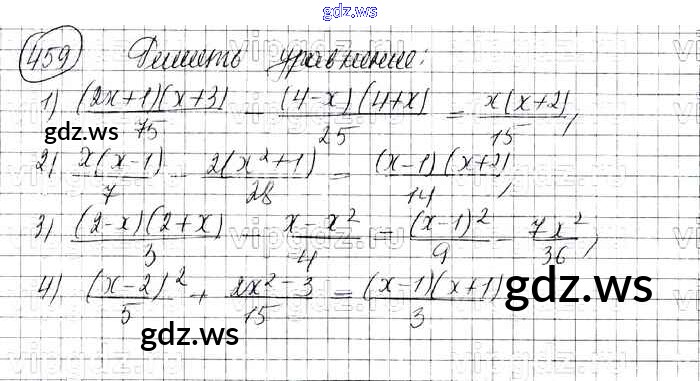 gdz.ws
459 Решить уравнение:
1) (2x+1)(x+3)/75 - (4-x)(4+x)/25 = x(x+2)/15,
gdz.ws
2) x(x-1)/7 - 2(x²+1)/28 = (x-1)(x+2)/14,
3) (2-x)(2+x)/3 - x-x²/4 = (x-1)²/9 - 7x²/36,
4) (x-2)²/5 + 2x²-3/15 = (x-1)(x+1)/3
gdz.ws
gdz.ws